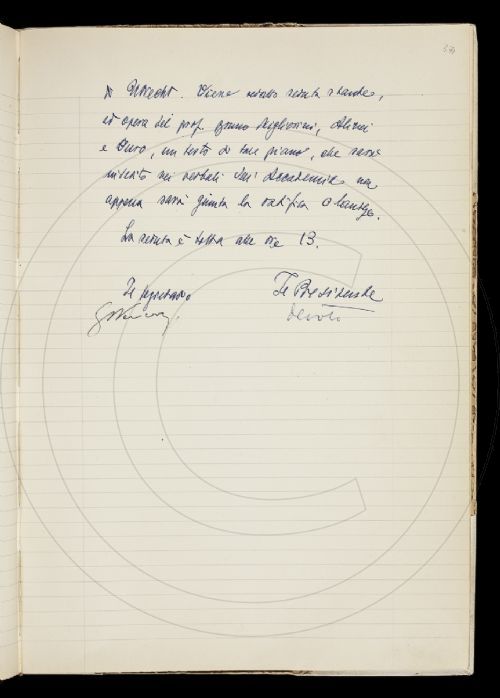 di Utrecht. Viene messo seduta stante,
ad opera dei prof. Bruno Migliorini, Alinei
e Duro, un testo di tale piano, che sarà
inserito nei verbali dell'Accademia non
appena sarà giunta la ratifica olandese.
La seduta è tolta alle ore 13.
Il Segretario
Il Presidente
Devoto